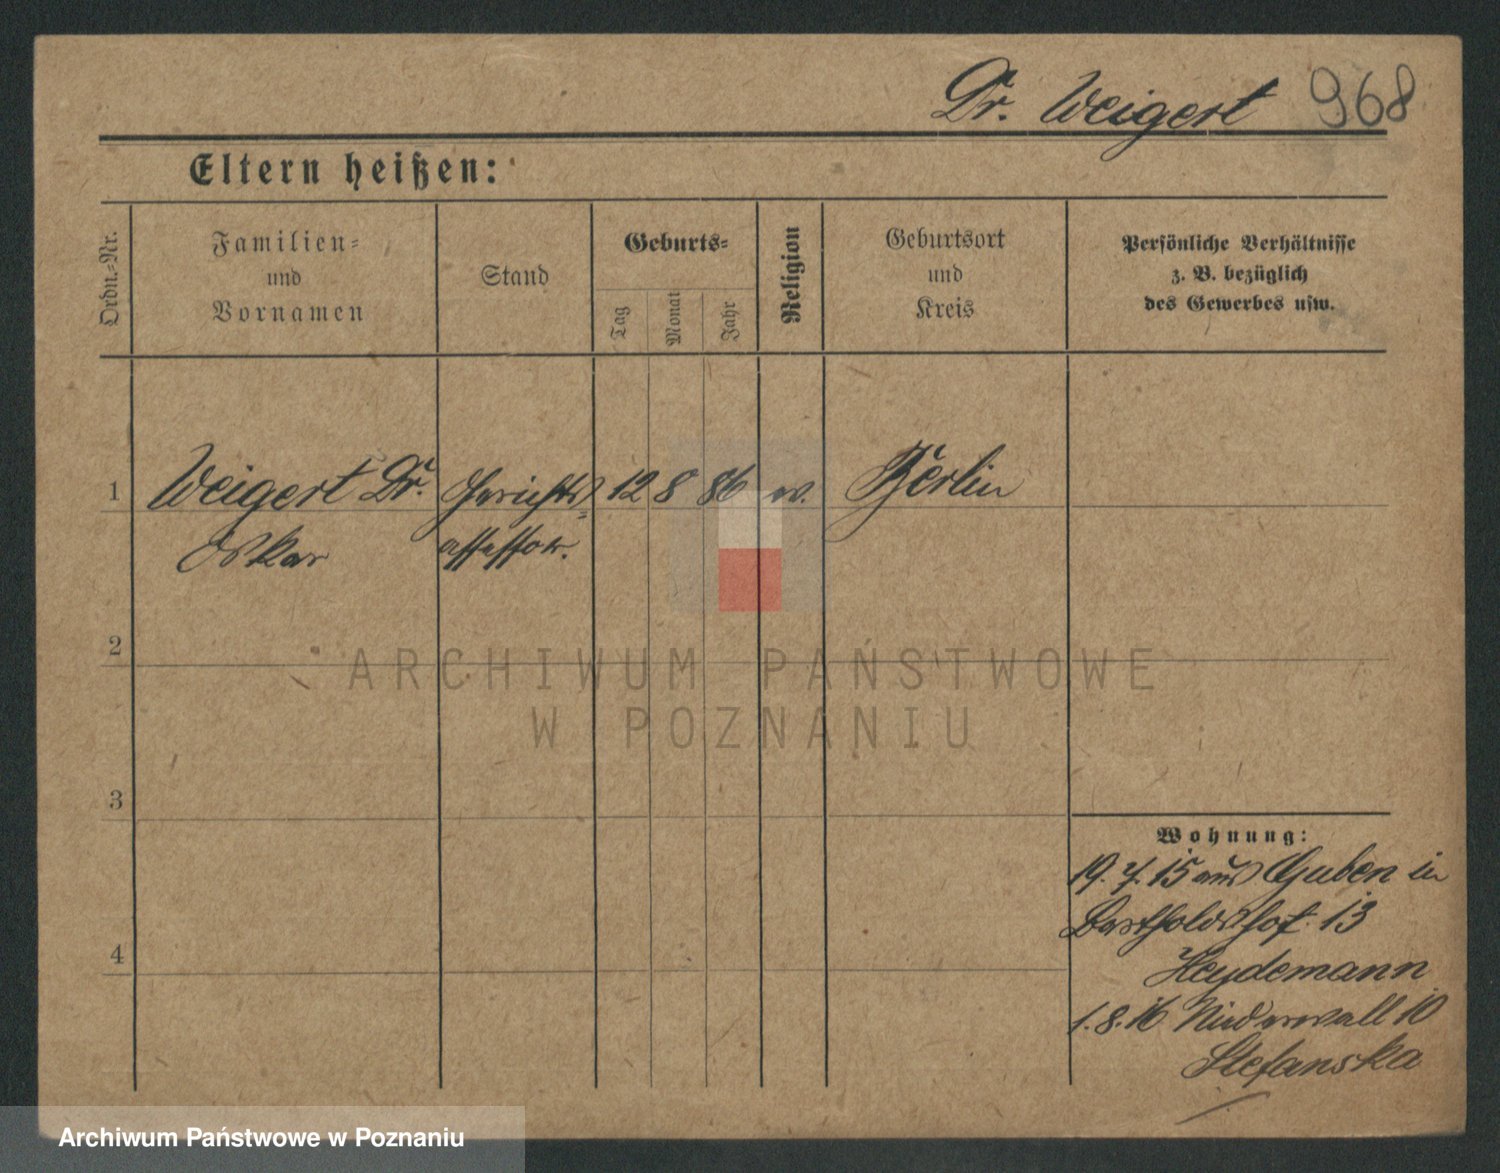 Dr. Weigert 968
Eltern heißen:
Ordn.-Nr.
Familien-
und
Vornamen
Stand
Geburts-
Tag
Monat
Jahr
Religion
Geburtsort
und
Kreis
Persönliche Verhältnisse
z. B. bezüglich
des Gewerbes usw.
1 Weigert Dr. Gerichts- 12 8 86 ev. Berlin
Oskar assessor.
2
ARCHIWUM PAŃSTWOWE
W POZNANIU
3
Wohnung:
19. 7. 15 aus Guben in
Bartholdshof. 13
4
Heydemann
1. 8. 16 Niederwall 10
Stefanska
Archiwum Państwowe w Poznaniu